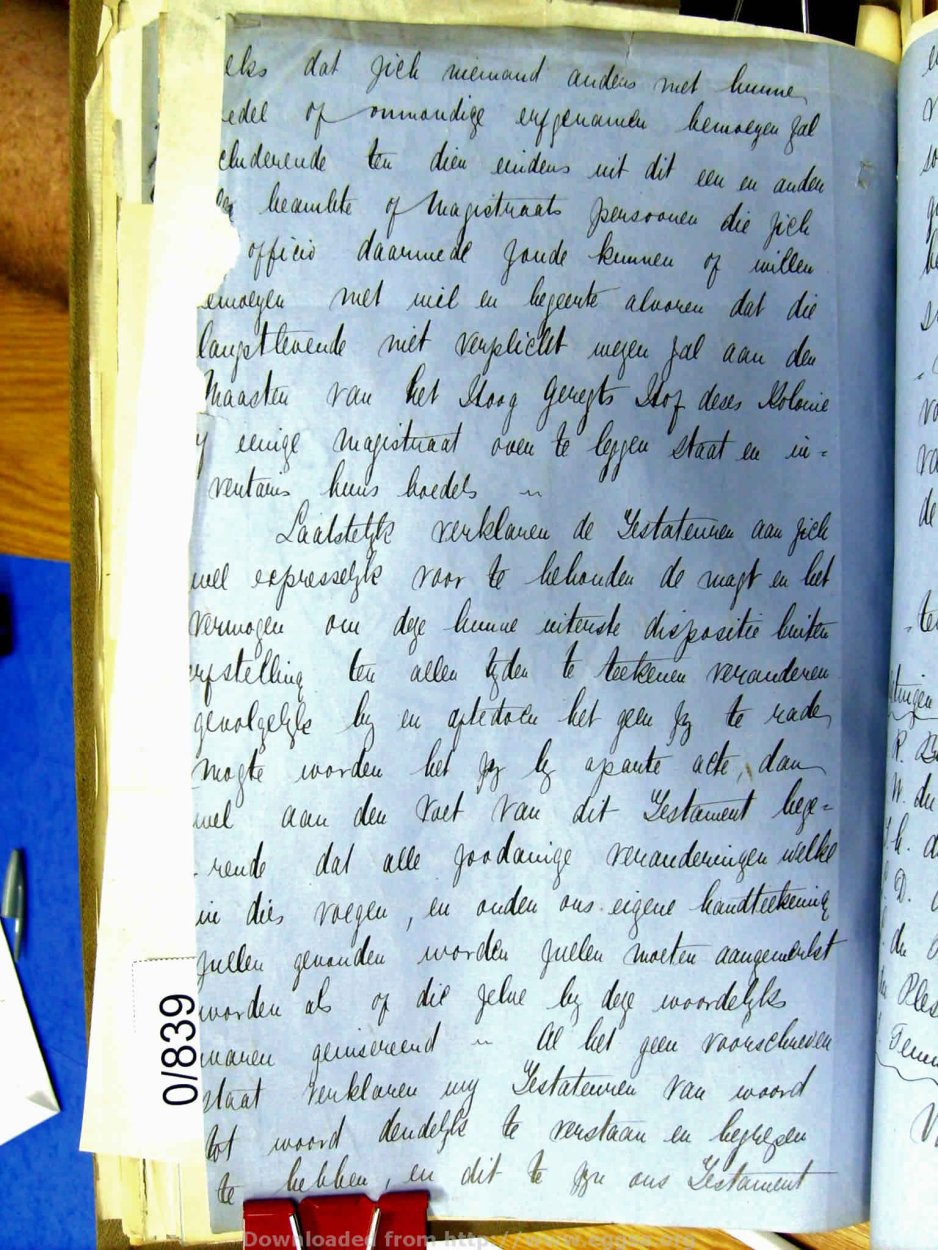 elks dat zich niemand anders met hunne
edel of onmondige erfgenamen bemoeyen zal
cluderende ten dien eindens uit dit een en ander
beambte of Magistraats persoonen die zich
officio daarmede zoude kunnen of willen
emoeyen met wil en begeerte alvoren dat die
langstlevende niet verplicht wezen zal aan den
Maasten van het Hoog Geregts Hof deses Kolonie
f eenige magistraat over te leggen Staat en in=
ventaris huns boedels
Laatstelyk verklaren de Testateuren aan zich
wel expresselyk voor te behouden de magt en het
vermogen om deze hunne uiterste dispositie buiten
erfstelling ten allen tyden te teekenen veranderen
gevolgelyk by en afte doen het geen zy te rade
mogte worden het zy by aparte acte, dan
wel aan den voet van dit Testament bege=
-rende dat alle zoodanige veranderingen welke
in dies voegen, en onder ons eigene handteekening
zullen gevonden worden zullen moeten aangemerkt
worden als of die zelve by deze woordelyks
waren geinsereerd Al het geen voorschreven
staat verklaren wy Testateuren van woord
tot woord duidelyk te verstaan en begrepen
te hebben, en dit te zyn ons Testament
0/839
Downloaded from http://www.eggsa.org